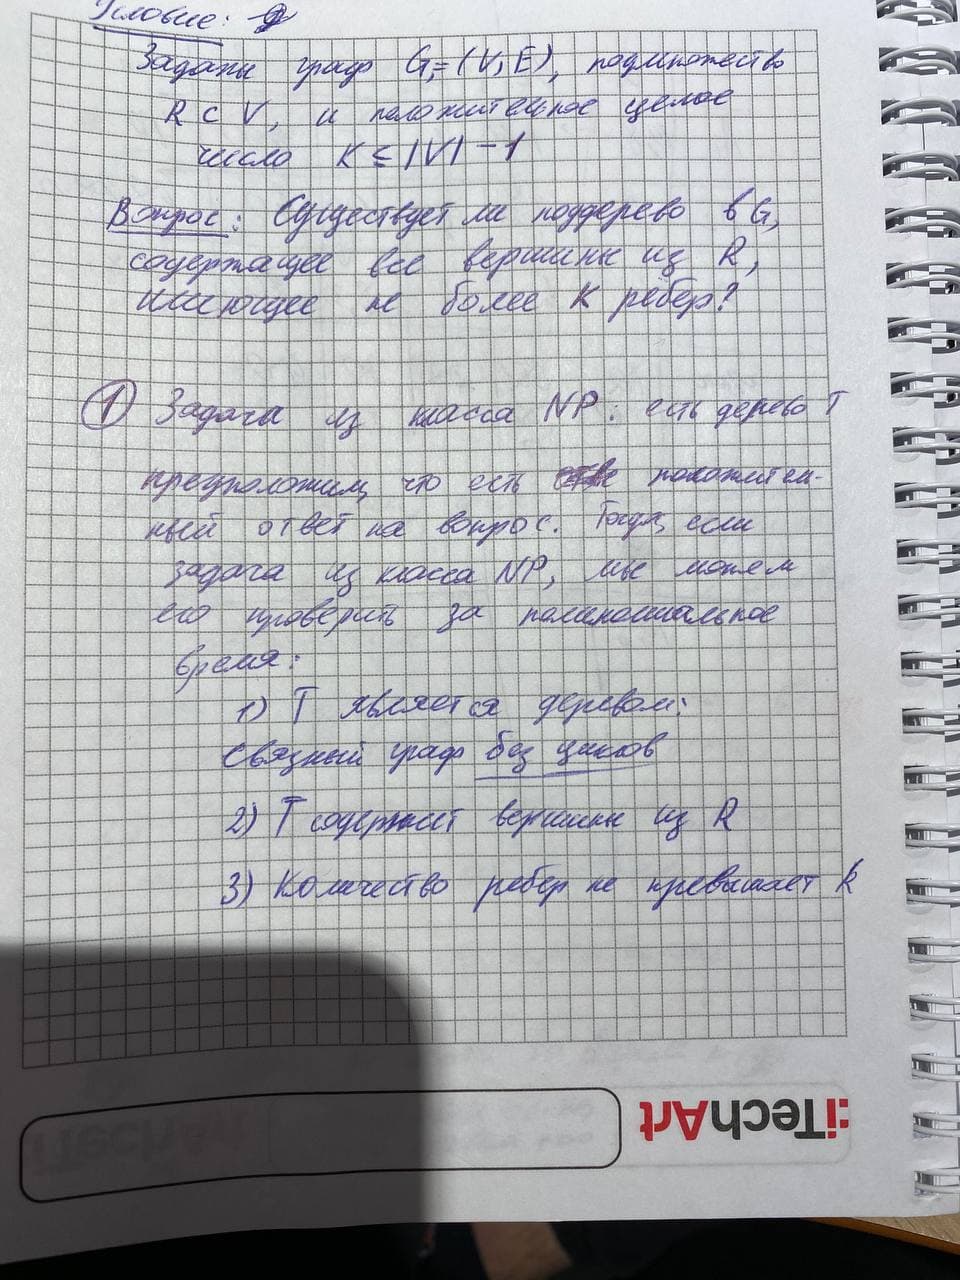 Условие:
Заданы граф G=(V,E), подмножество
R ⊂ V, и положительное целое
число K ≤ |V| - 1
Вопрос: Существует ли поддерево в G,
содержащее все вершины из R,
имеющее не более K ребер?
① Задача из класса NP: есть дерево T
предположим, что есть положитель-
ный ответ на вопрос. Тогда, если
задача из класса NP, мы можем
его проверить за полиномиальное
время:
1) T является деревом:
связный граф без циклов
2) T содержит вершины из R
3) Количество ребер не превышает k
:iTechArt